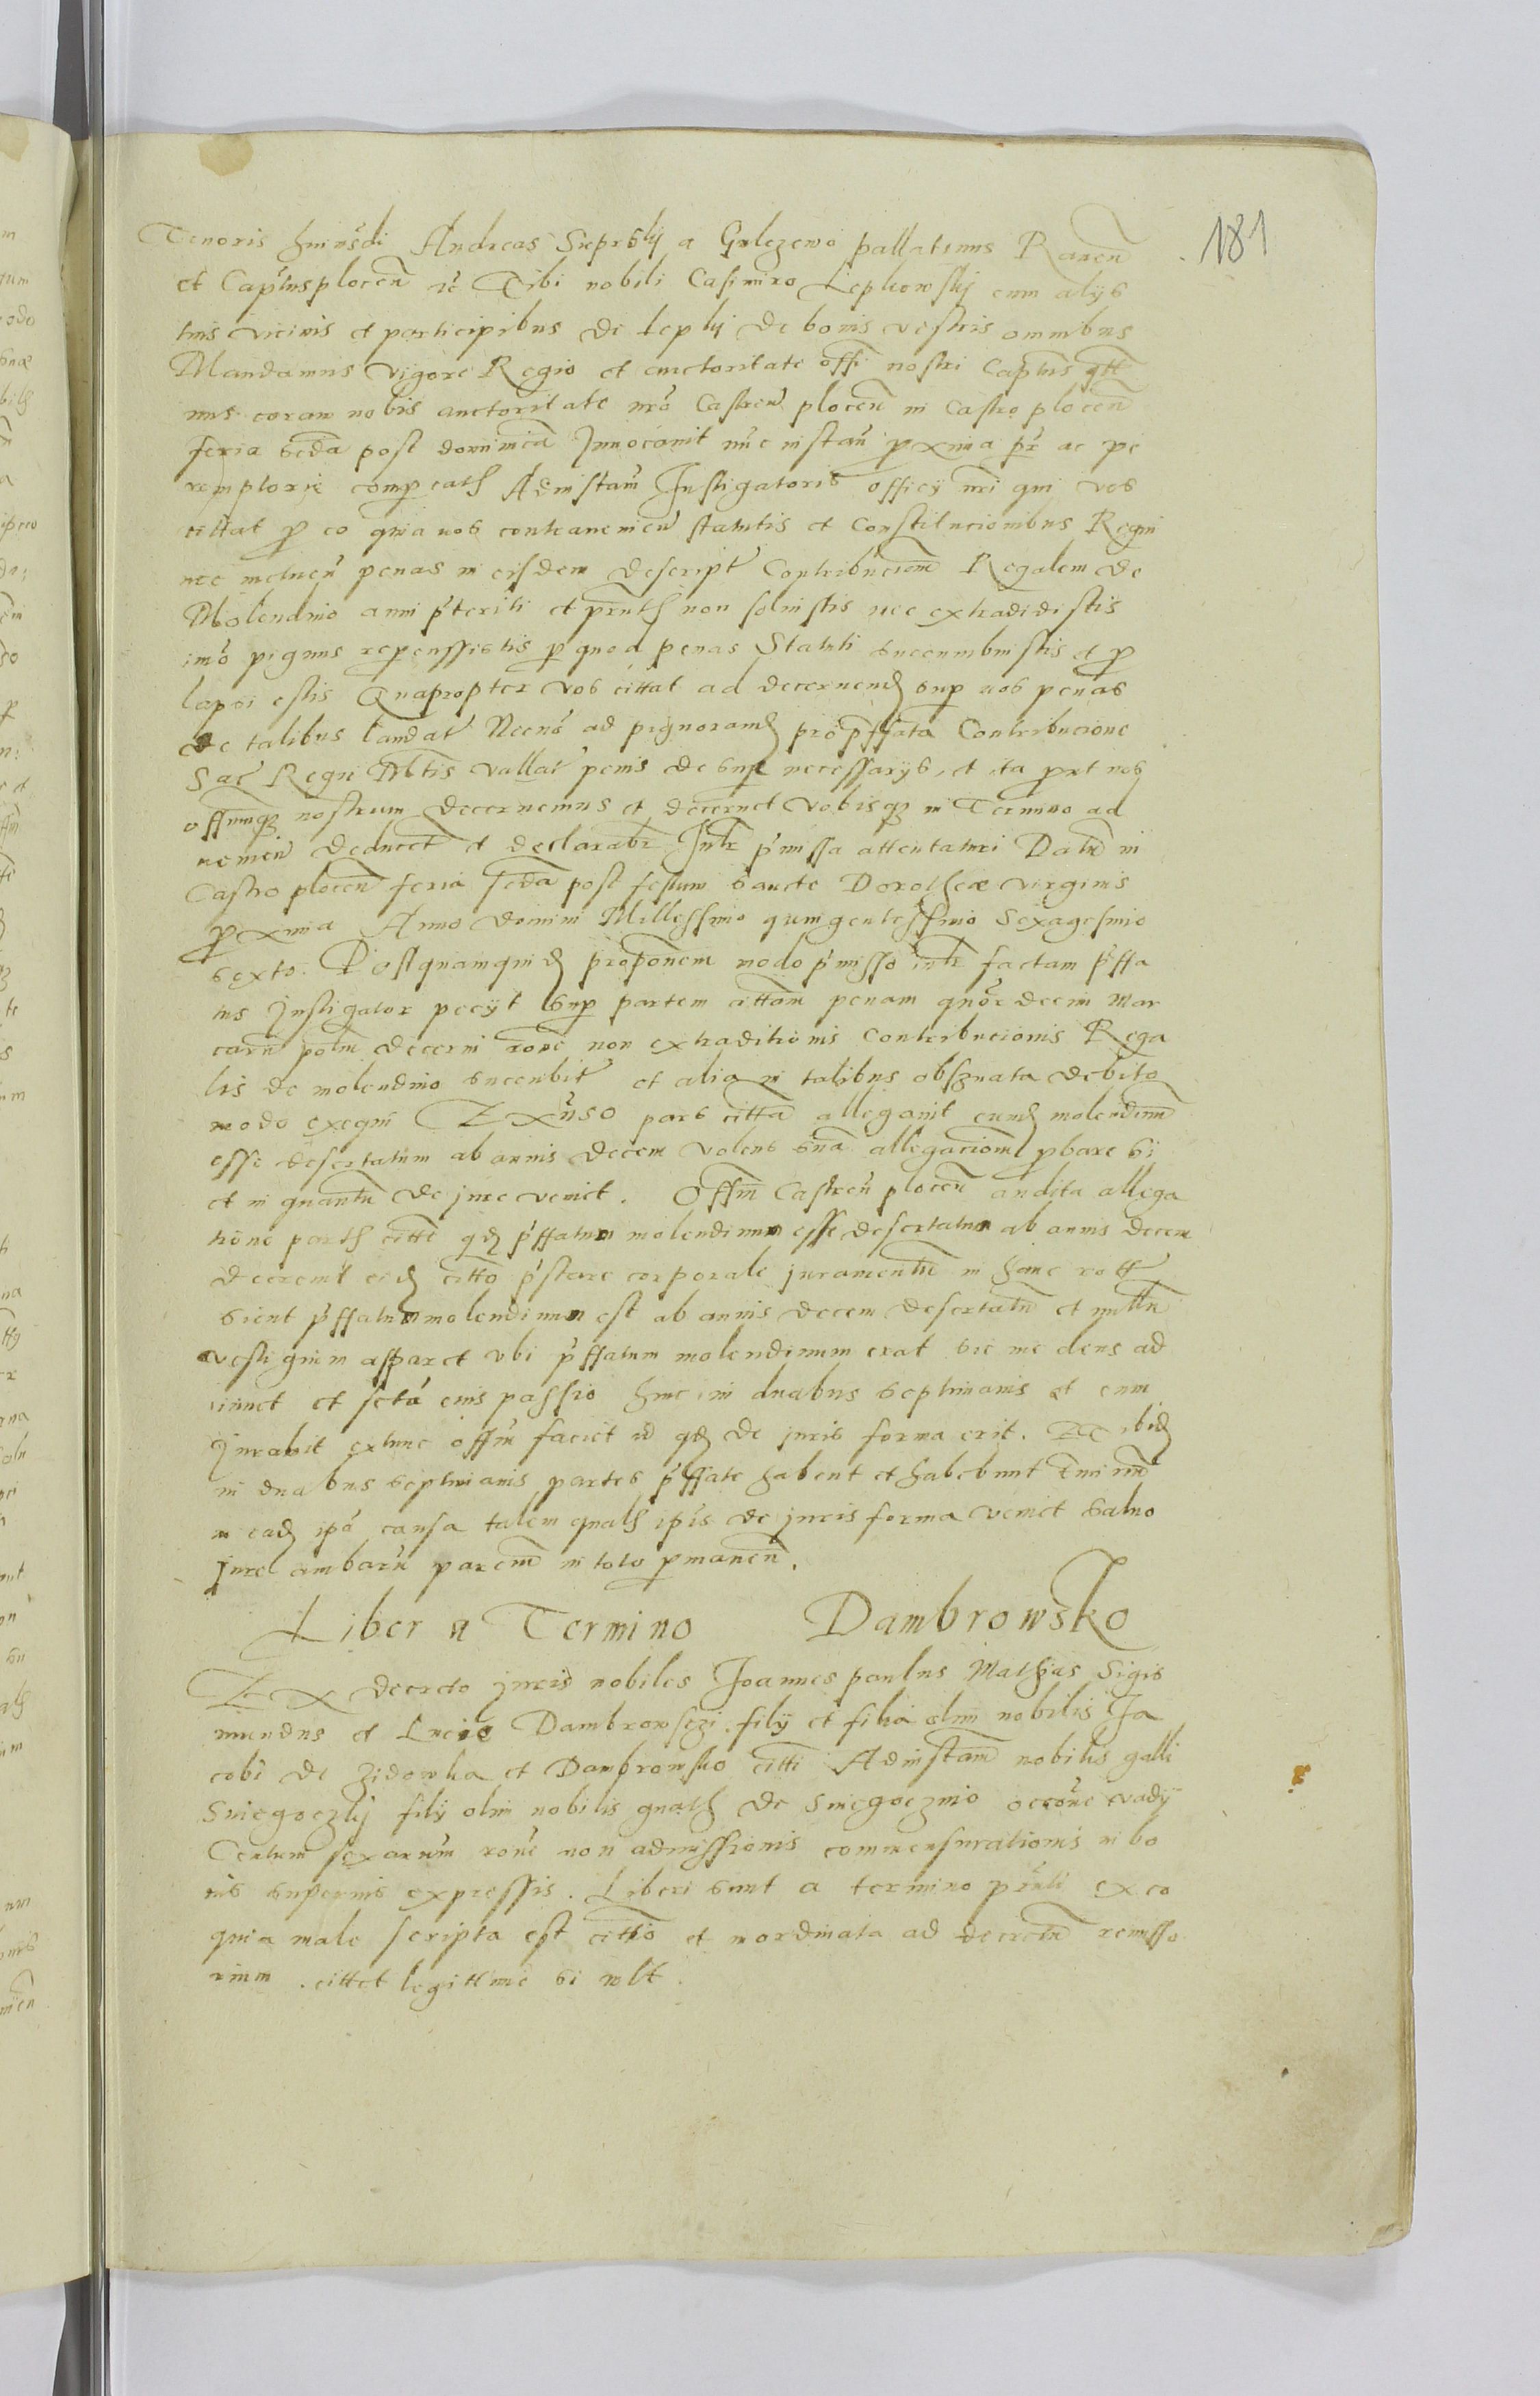 181
Tenoris huiusdi Andreas Sieprsky a Gulczewo pallatinus Raven
et Captus plocen ec Tibi nobili Casimiro Lepkowsky cum alys
tuis vicinis et participibus de lepky de bonis vestris omnibus
Mandamus vigore Regio et auctoritate offi nostri Captus qtt
nus coram nobis auctoritate nro Castren plocen in Castro plocen
feria scda post dominica Invocavit nuc instan proxima pr ac pe
remptorie compeatis Ad instam Instigatoris officy nri qui vos
cittat p eo quia vos contravenien statutis et Constitucionibus Regni
nec metuen penas in eisdem descript Contribucione Regalem de
Molendino anni pteriti et pntis non solvistis nec extradidistis
imo pignus repercussistis p quod penas Statuti succumbuistis et p
lapsi estis Quapropter vos cittat ad decernend sup vos penas
de talibus laudat Necno ad pignorand pro pffata Contribucione
Sac Regie Mtis vallat penis de sup necessarys, et ita prt nos
offmq nostrum decernemus et decernet vobisq in Termino ad
nemen deducet et declarabr Intr pmissa attentaturi Datu in
Castro plocen feria scda post festum Sancte Dorotheæ virginis
proxima Anno domini Millessimo quingentessimo Sexagesimo
sexto. Postquamquid proponem modo pmisso intr factam pffa
tus Instigator pecyt sup partem cittam penam quor decim mar
caru polm decerni rone non extraditionis contribucionis Rega
lis de molendino succubit et alia in talibus obsvata debito
modo exequi Ex adverso pars citta allegavit eund molendinu
esse desertatum ab annis decem volens sua allegacione pbare si
et in quantu de jure veniet. Offm Castren plocen audita allega
tione partis citte qd pffatum molendinum esse desertatum ab annis decem
decrevit eid citto pstare corporale juramentu in hanc rott
sicut pffatum molendinum est ab annis decem desertatu et nullu
vestigium apparet vbi pffatum molendinum erat sic me deus ad
iuuet et scta eius passio hinc in duabus septimanis et cum
Jurabit extunc offm faciet id qd de juris forma erit. Et ibid
in duabus septimanis partes pffate habent et habebunt Tmi nu
in ead ipa causa talem qualis ipis de juris forma veniet salvo
jure ambaru parcm in toto pmanen.
Liber a Termino Dambrowsko
Ex decreto juris nobiles Joannes paulus Mathias Sigis
mundus et Lucia Dambrowsczi fily et filia olim nobilis Ja
cobi de Zidowka et Dambrowsko citti Ad instam nobilis galli
Sniegoczky fily olim nobilis gnath de Sniegoczino occone vady
Centum sexarum rone non admissionis commensurationis in bo
nis supernis expressis. Liberi sunt a termino pnti ex eo
quia male scripta est cittio et inordinata ad decretu remisso
rium. cittet legittime si vult.